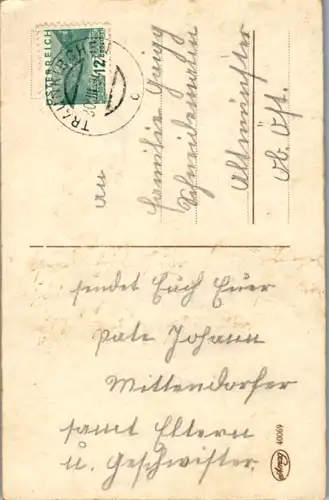 ÖSTERREICH
12
TRAUNKIRCHEN
An
Familie Grigg
Schneidermeister
Altmünster
Ob. Öst.
sendet Euch Euer
Pate Johann
Mittendorfer
samt Eltern
u. Geschwister.
40069